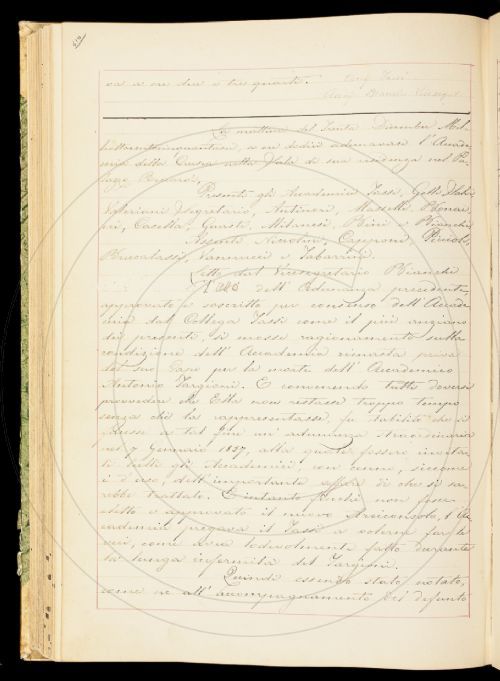 va a ore due e tre quarti.
La mattina del Trenta Dicembre Mil
lottocentocinquantasei, a ore dodici adunavasi l'Accade
mia della Crusca nella Sala di sua residenza nel Pa
lazzo Riccardi.
Presenti gli Accademici Tassi, Gelli
Valeriani Segretario, Antinori, Masselli
Casella, Guasti, Milanesi, Bini e Bianchi
Assenti Nicolini, Capponi,
Brucalassi, Vannucci e Tabarrini.
Letto dal Vicesegretario Bianchi
l'Atto dell'Adunanza precedente,
approvato e soscritto per consenso dell'Accade
mia dal Collega Tassi come il più anziano
dei presenti, si mosse ragionamento sulla
condizione dell'Accademia rimasta priva
del suo Capo per la morte dell'Accademico
Antonio Targioni. E convenendo tutti doversi
provvedere che Ella non restasse troppo tempo
senza chi la rappresentasse, fu stabilito che si
facesse a tal fine un'adunanza straordinaria
nel 7 Gennaio 1857, alla quale fossero invita
ti tutti gli Accademici, con cenno, siccome
è d'uso, dell'importante affare di che si sa
rebbe trattato. E intanto finchè non fosse
eletto e approvato il nuovo Arciconsolo, l'Ac
cademia pregava il Tassi a volerne far le
veci, come avea lodevolmente fatto durante
la lunga infermità del Targioni.
Quindi essendo stato notato,
come ne all'accompagnamento del defunto